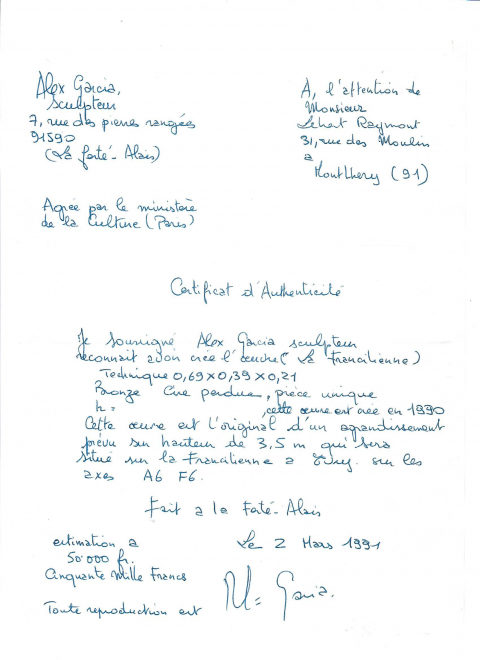 Alex Garcia,
sculpteur
7, rue des pierres rangées
91590
(La ferté-Alais)
Agrée par le ministère
de la Culture (Paris)
A, l'attention de
Monsieur
Lehat Raymont
31, rue des Moulin
a
Montlhery (91)
Certificat d'Authenticité
Je soussigné Alex Garcia sculpteur
reconnait avoir crée l'œuvre (La Francilienne)
Technique 0,69 x 0,39 x 0,21
Bronze Cire perdue, pièce unique
h = , cette œuvre est crée en 1990
Cette œuvre est l'original d'un agrandissement
prévu sur hauteur de 3,5 m qui sera
situé sur la Francilienne a sur les
axes A6 F6.
Fait a la Ferté-Alais
estimation a
50'000 fr.
Cinquante Mille Francs
Toute reproduction est
Le 2 Mars 1991
Garcia.